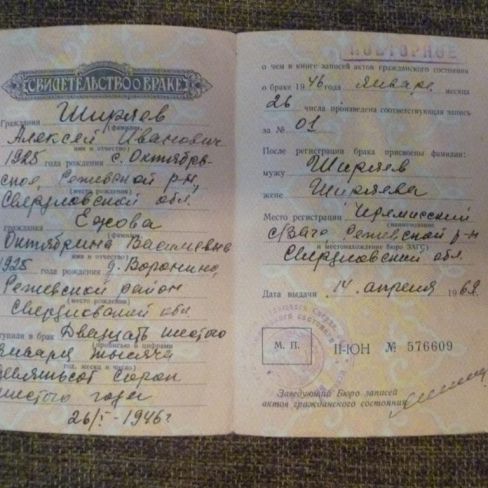 СВИДЕТЕЛЬСТВО О БРАКЕ
Гражданин Ширяев
(фамилия)
Алексей Иванович
имя и отчество)
1925 года рождения с. Октябрь-
ское, Режевской р-н,
(место рождения)
Свердловской обл.
гражданка Ежова
(фамилия)
Октябрина Васильевна
имя и отчество)
1925 года рождения д. Воронино,
Режевской район
(место рождения)
Свердловской обл
вступили в брак Двадцать шестого
января тысяча
(прописью и цифрами
год, месяц и число)
девятьсот сорок
шестого года
26/I - 1946 г
ПОВТОРНОЕ
о чем в книге записей актов гражданского состояния
о браке 1946 года январе месяца
26 числа произведена соответствующая запись
за № 01
После регистрации брака присвоены фамилии:
мужу Ширяев
жене Ширяева
Место регистрации Черемисский
(наименование
с/ЗАГС Режевской р-н
и местонахождение бюро ЗАГС)
Свердловской обл.
Дата выдачи 14 апреля 1969.
М. П.
II-ЮН № 576609
Заведующий Бюро записей
актов гражданского состояния